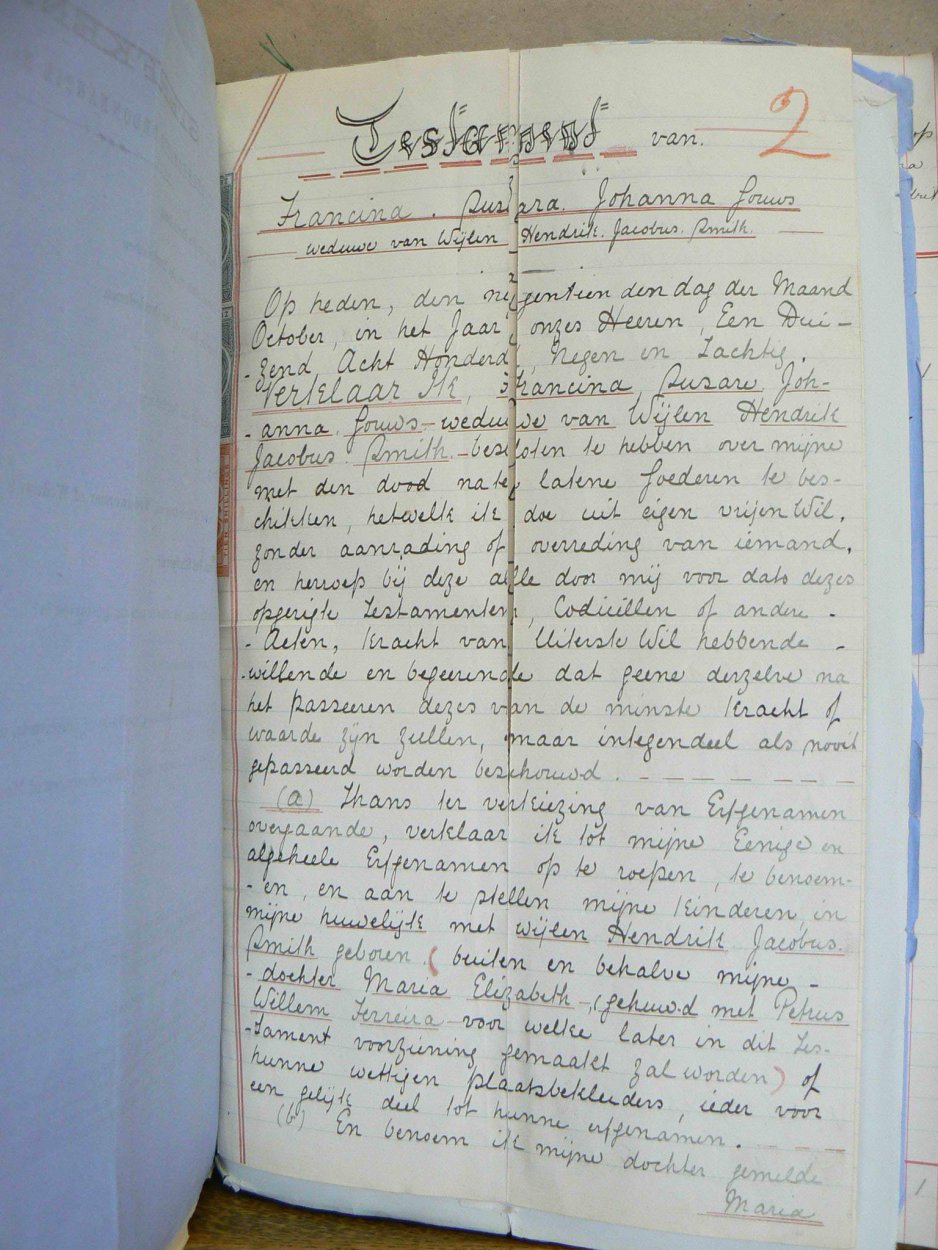 Testament van. 2
Francina. Susara. Johanna Gouws
weduwe van Wijlen Hendrik. Jacobus. Smith.
Op heden, den negentienden dag der Maand
October, in het Jaar onzes Heeren, Een Dui-
-zend Acht Honderd, Negen en Tachtig.
Verklaar Ik, Francina Susara Joh-
-anna Gouws - weduwe van Wijlen Hendrik
Jacobus Smith. - besloten te hebben over mijne
met den dood na te latene Goederen te bes-
chikken, hetwelk ik doe uit eigen vrijen Wil,
zonder aanrading of overreding van iemand,
en herroep bij deze alle door mij voor dato dezes
opgerigte Testamenten, Codicillen of andere -
- Acten, Kracht van Uiterste Wil hebbende -
-willende en begeerende dat geene derzelve na
het passeeren dezes van de minste Kracht of
waarde zijn zullen, maar integendeel als nooit
gepasseerd worden beschouwd. - - - - - -
(a) Thans ter verkiezing van Erfgenamen
overgaande, verklaar ik tot mijne Eenige en
algeheele Erfgenamen op te roepen, te benoem-
-en, en aan te stellen mijne Kinderen, in
mijne huwelijk met wijlen Hendrik Jacobus.
Smith geboren (buiten en behalve mijne -
- dochter Maria Elizabeth -, (gehuwd met Petrus
Willem Ferreira - voor welke later in dit Tes-
-tament voorziening gemaakt zal worden) of
hunne wettigen plaatsbekleeders, ieder voor
een gelijk deel tot hunne erfgenamen. - - -
(b) En benoem ik mijne dochter gemelde
Maria
TIEN SHILLINGS